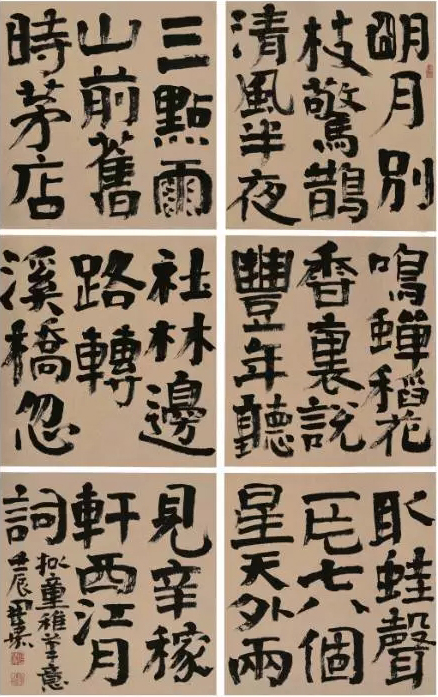 明月別
枝驚鵲
清風半夜
鳴蟬稻花
香裏説
豐年聽
取蛙聲
一片七八個
星天外兩
三點雨
山前舊
時茅店
社林邊
路轉
溪橋忽
見辛稼
軒西江月
詞
拟童稚筆意
壬辰